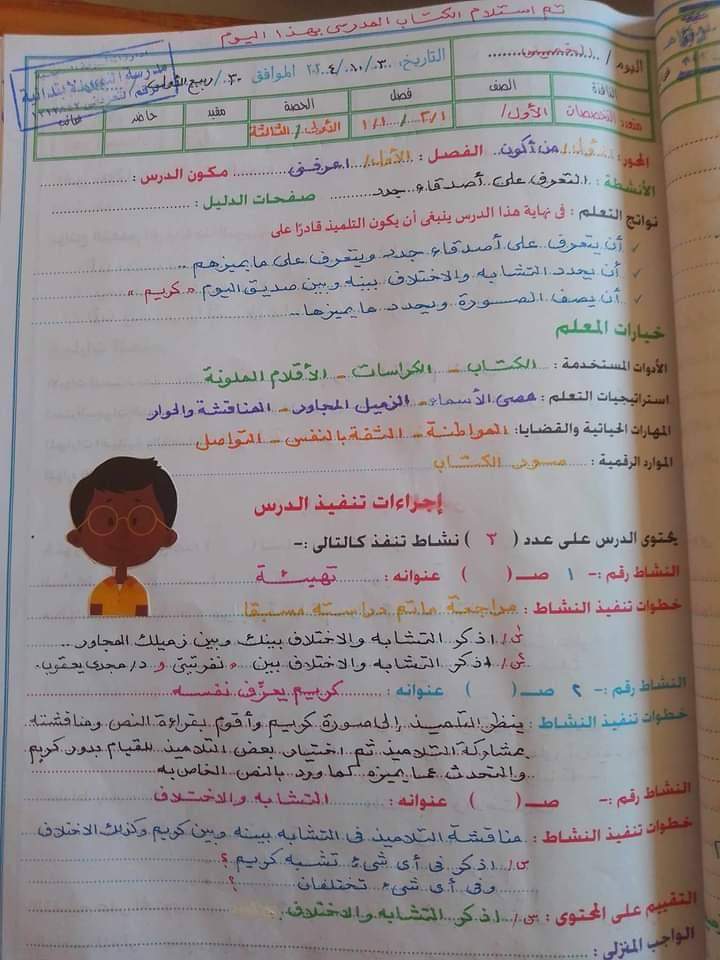 تم استلام الكتاب المدرسى بهذا اليوم
اليوم /
التاريخ: ٣٠../..١٠../..٢٠٢٤ الموافق
الصف فصل الحصة مقيد حاضر غائب
متعدد التخصصات الأول/ ٢/١...١/١ الأولى/الثالثة
المحور: من أكون.. الفصل: الأول/ اعرفنى مكون الدرس:
الأنشطة: التعرف على أصدقاء جدد صفحات الدليل:
نواتج التعلم: فى نهاية هذا الدرس ينبغى أن يكون التلميذ قادرًا على
✓ أن يتعرف على أصدقاء جدد ويتعرف على ما يميزهم..
✓ أن يحدد التشابه والاختلاف بينه وبين صديق اليوم "كريم"
✓ أن يصف الصورة ويحدد ما يميزها..
خيارات المعلم
الأدوات المستخدمة: الكتاب - الكراسات - الأقلام الملونة
استراتيجيات التعلم: عصى الأسماء - الزميل المجاور - المناقشة والحوار
المهارات الحياتية والقضايا: المواطنة - الثقة بالنفس - التواصل
الموارد الرقمية: صور الكتاب
إجراءات تنفيذ الدرس
يحتوى الدرس على عدد ( ٣ ) نشاط تنفذ كالتالى:-
النشاط رقم:- ١ صـ ( ) عنوانه: تهيئة
خطوات تنفيذ النشاط: مراجعة ما تم دراسته مسبقا
س/ اذكر التشابه والاختلاف بينك وبين زميلك المجاور..
س/ اذكر التشابه والاختلاف بين "نفرتيتى و د/مجدى يعقوب.
النشاط رقم:- ٢ صـ ( ) عنوانه: كريم يعرف نفسه
خطوات تنفيذ النشاط: ينظر التلميذ إلى صورة كريم وأقوم بقراءة النص ومناقشته
بمشاركة التلاميذ ثم اختيار بعض التلاميذ للقيام بدور كريم
والتحدث عما يميزه كما ورد بالنص الخاص به
النشاط رقم:- صـ ( ) عنوانه: التشابه والاختلاف
خطوات تنفيذ النشاط: مناقشة التلاميذ فى التشابه بينه وبين كريم وكذلك الاختلاف
س/ اذكر فى أى شئ تشبه كريم ؟
وفى أى شئ تختلفان ؟
التقييم على المحتوى: س/ اذكر التشابه والاختلاف
الواجب المنزلى: